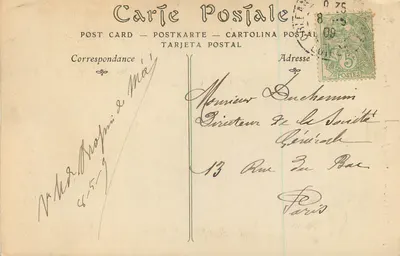 Carte Postale
POST CARD — POSTKARTE — CARTOLINA POSTAL
TARJETA POSTAL
Correspondance
Adresse
8-5-9
Monsieur Duchemin
Directeur de la Société
Générale
13 Rue du Bac
Paris